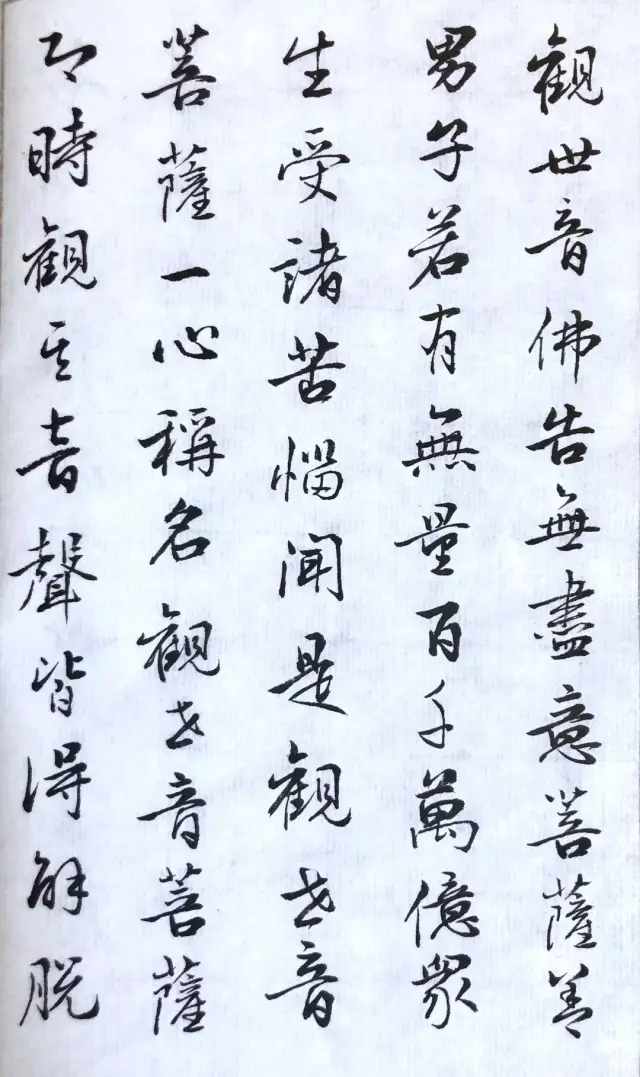 觀世音佛告無盡意菩薩善
男子若有無量百千萬億眾
生受諸苦惱聞是觀世音
菩薩一心稱名觀世音菩薩
即時觀其音聲皆得解脫